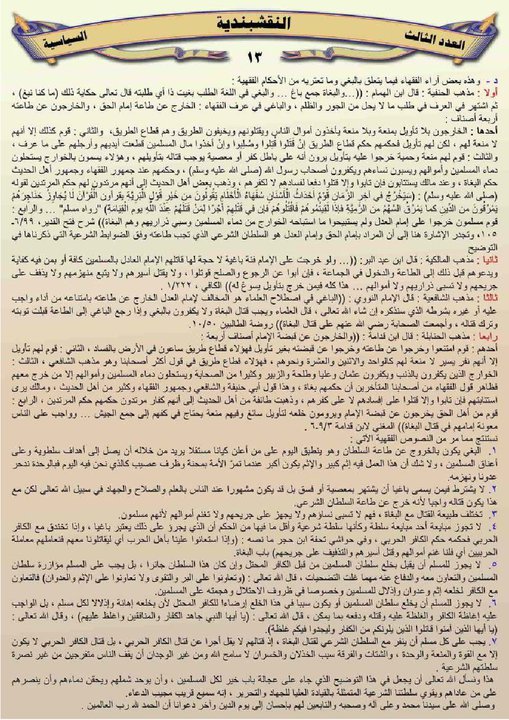 النقشبندية
العدد الثالث
السياسية
١٣
د - وهذه بعض آراء الفقهاء فيما يتعلق بالبغي وما تعتريه من الأحكام الفقهية :
أولا : مذهب الحنفية : قال ابن الهمام : ((...والبغاة جمع باغ ... والبغي في اللغة الطلب بغيت ذا أي طلبته قال تعالى حكاية ذلك (ما كنا نبغ) ،
ثم اشتهر في العرف في طلب ما لا يحل من الجور والظلم ، والباغي في عرف الفقهاء : الخارج عن طاعة إمام الحق ، والخارجون عن طاعته
أربعة أصناف :
أحدها : الخارجون بلا تأويل بمنعة وبلا منعة يأخذون أموال الناس ويقتلونهم ويخيفون الطريق وهم قطاع الطريق، والثاني : قوم كذلك إلا أنهم
لا منعة لهم ، لكن لهم تأويل فحكمهم حكم قطاع الطريق إن قتلوا قتلوا وصلبوا وإن أخذوا مال المسلمين قطعت أيديهم وأرجلهم على ما عرف ،
والثالث : قوم لهم منعة وحمية خرجوا عليه بتأويل يرون أنه على باطل كفر أو معصية يوجب قتاله بتأويلهم ، وهؤلاء يسمون بالخوارج يستحلون
دماء المسلمين وأموالهم ويسبون نساءهم ويكفرون أصحاب رسول الله (صلى الله عليه وسلم) ، وحكمهم عند جمهور الفقهاء وجمهور أهل الحديث
حكم البغاة ، وعند مالك يستتابون فإن تابوا وإلا قتلوا دفعا لفسادهم لا لكفرهم ، وذهب بعض أهل الحديث إلى أنهم مرتدون لهم حكم المرتدين لقوله
(صلى الله عليه وسلم) : (سَيَخْرُجُ فِي آخِرِ الزَّمَانِ قَوْمٌ أَحْدَاثُ الْأَسْنَانِ سُفَهَاءُ الْأَحْلَامِ يَقُولُونَ مِنْ خَيْرِ قَوْلِ الْبَرِيَّةِ يَقْرَءُونَ الْقُرْآنَ لَا يُجَاوِزُ حَنَاجِرَهُمْ
يَمْرُقُونَ مِنَ الدِّينِ كَمَا يَمْرُقُ السَّهْمُ مِنَ الرَّمِيَّةِ فَإِذَا لَقِيتُمُوهُمْ فَاقْتُلُوهُمْ فَإِنَّ فِي قَتْلِهِمْ أَجْرًا لِمَنْ قَتَلَهُمْ عِنْدَ اللَّهِ يَوْمَ الْقِيَامَةِ) "رواه مسلم" ... والرابع :
قوم مسلمون خرجوا على إمام العدل ولم يستبيحوا ما استباحه الخوارج من دماء المسلمين وسبي ذراريهم وهم البغاة)) شرح فتح القدير ٦/٩٩ ،
١٠٥، وتجدر الإشارة هنا إلى أن المراد بإمام الحق وإمام العدل هو السلطان الشرعي الذي تجب طاعته وفق الضوابط الشرعية التي ذكرناها في
التوضيح
ثانيا : مذهب المالكية : قال ابن عبد البر: ((... ولو خرجت على الإمام فئة باغية لا حجة لها قاتلهم الإمام العادل بالمسلمين كافة أو بمن فيه كفاية
ويدعوهم قبل ذلك إلى الطاعة والدخول في الجماعة ، فإن أبوا عن الرجوع والصلح قوتلوا ، ولا يقتل أسيرهم ولا يتبع منهزمهم ولا يذفف على
جريحهم ولا تسبى ذراريهم ولا أموالهم ... هذا كله فيمن خرج بتأويل يسوغ له)) الكافي ، ١/٢٢٢ .
ثالثا : مذهب الشافعية : قال الإمام النووي : ((الباغي في اصطلاح العلماء هو المخالف لإمام العدل الخارج عن طاعته بامتناعه من أداء واجب
عليه أو غيره بشرطه الذي سنذكره إن شاء الله تعالى ، قال العلماء ويجب قتال البغاة ولا يكفرون بالبغي وإذا رجع الباغي إلى الطاعة قبلت توبته
وترك قتاله ، وأجمعت الصحابة رضي الله عنهم على قتال البغاة)) روضة الطالبين ١٠/٥٠ .
رابعا : مذهب الحنابلة : قال ابن قدامة : ((والخارجون عن قبضة الإمام أصناف أربعة :
أحدها : قوم امتنعوا وخرجوا عن طاعته وخرجوا عن قبضته بغير تأويل فهؤلاء قطاع طريق ساعون في الأرض بالفساد ، الثاني : قوم لهم تأويل
إلا أنهم نفر يسير لا منعة لهم كالواحد والاثنين والعشرة ونحوهم ، فهؤلاء قطاع طريق في قول أكثر أصحابنا وهو مذهب الشافعي ، الثالث :
الخوارج الذين يكفرون بالذنب ويكفرون عثمان وعليا وطلحة والزبير وكثيرا من الصحابة ويستحلون دماء المسلمين وأموالهم إلا من خرج معهم
فظاهر قول الفقهاء من أصحابنا المتأخرين أن حكمهم بغاة ، وهذا قول أبي حنيفة والشافعي وجمهور الفقهاء وكثير من أهل الحديث ، ومالك يرى
استتابتهم فإن تابوا وإلا قتلوا على إفسادهم لا على كفرهم ، وذهبت طائفة من أهل الحديث إلى أنهم كفار مرتدون حكمهم حكم المرتدين ، الرابع :
قوم من أهل الحق يخرجون عن قبضة الإمام ويرومون خلعه لتأويل سائغ وفيهم منعة يحتاج في كفهم إلى جمع الجيش ... وواجب على الناس
معونة إمامهم في قتال البغاة)) المغني لابن قدامة ٩/٣-٦
نستنتج مما مر من النصوص الفقهية الآتي :
١. البغي يكون بالخروج عن طاعة السلطان وهو ينطبق اليوم على من أعلن كيانا مستقلا يريد من خلاله أن يصل إلى أهداف سلطوية وعلى
أعناق المسلمين ، ولا شك أن هذا العمل فيه إثم كبير والإثم يكون أكبر عندما تمرّ الأمة بمحنة وظرف عصيب كالذي نحن فيه اليوم فبالوحدة ندحر
عدونا ونهزمه.
٢. لا يشترط فيمن يسمى باغيا أن يشتهر بمعصية أو فسق بل قد يكون مشهورا عند الناس بالعلم والصلاح والجهاد في سبيل الله تعالى لكن مع
هذا يكون قتاله واجبا لأنه خرج عن طاعة السلطان الشرعي.
٣. تختلف طبيعة القتال مع البغاة ، فهم لا تسبى نساؤهم ولا يجهز على جريحهم ولا تغنم أموالهم لأنهم مسلمون.
٤. لا تجوز مبايعة أحد مبايعة سلطة وكأنها سلطة شرعية وأقل ما فيها من الحكم أن الذي يجرؤ على ذلك يعتبر باغيا ، وإذا تخندق مع الكافر
الحربي فحكمه حكم الكافر الحربي ، وفي حواشي تحفة ابن حجر ما نصه : ((وإذا استعانوا علينا بأهل الحرب أي ليقاتلونا معهم فنعاملهم معاملة
الحربيين أي فلنا غنم أموالهم وقتل أسيرهم والتذفيف على جريحهم)) باب البغاة.
٥. لا يجوز للمسلم أن يقبل بخلع سلطان المسلمين من قبل الكافر المحتل وإن كان هذا السلطان جائرا ، بل يجب على المسلم مؤازرة سلطان
المسلمين والتعاون معه والدفاع عنه مهما غلت التضحيات ، قال الله تعالى : (وتعاونوا على البر والتقوى ولا تعاونوا على الإثم والعدوان) فالتعاون
مع الكافر لخلعه إثم وعدوان وإذلال للمسلمين وخصوصا في ظروف الاحتلال وهجمته على المسلمين.
٦. لا يجوز للمسلم أن يخلع سلطان المسلمين أو يكون سببا في هذا الخلع إرضاءاً للكافر المحتل لأن بخلعه إهانة وإذلالا لكل مسلم ، بل الواجب
عليه إغاظة الكافر والغلظة عليه وقتاله ودفعه بما يمكن ، قال الله تعالى : (يا أيها النبي جاهد الكفار والمنافقين واغلظ عليهم) ، وقال تعالى :
(يا أيها الذين آمنوا قاتلوا الذين يلونكم من الكفار وليجدوا فيكم غلظة).
٧. يجب على كل مسلم أن ينفر مع السلطان الشرعي لقتال البغاة ، إذ قتالهم لا يقل أجرا عن قتال الكافر الحربي ، بل قتال الكافر الحربي لا يكون
إلا مع القوة والمنعة والوحدة ، والشتات والفرقة سبب الخذلان والخسران لا سامح الله ومن غير الوجدان أن يقف الناس متفرجين من غير نصرة
سلطتهم الشرعية .
هذا ونسأل الله تعالى أن يجعل في هذا التوضيح الذي جاء على عجالة باب خير لكل المسلمين ، وأن يوحد شملهم ويحقن دماءهم وأن ينصرهم
على من عاداهم ويقوي سلطتنا الشرعية المتمثلة بالقيادة العليا للجهاد والتحرير ، إنه سميع قريب مجيب الدعاء.
وصلى الله على سيدنا محمد وعلى آله وصحبه والتابعين لهم بإحسان إلى يوم الدين وآخر دعوانا أن الحمد لله رب العالمين .